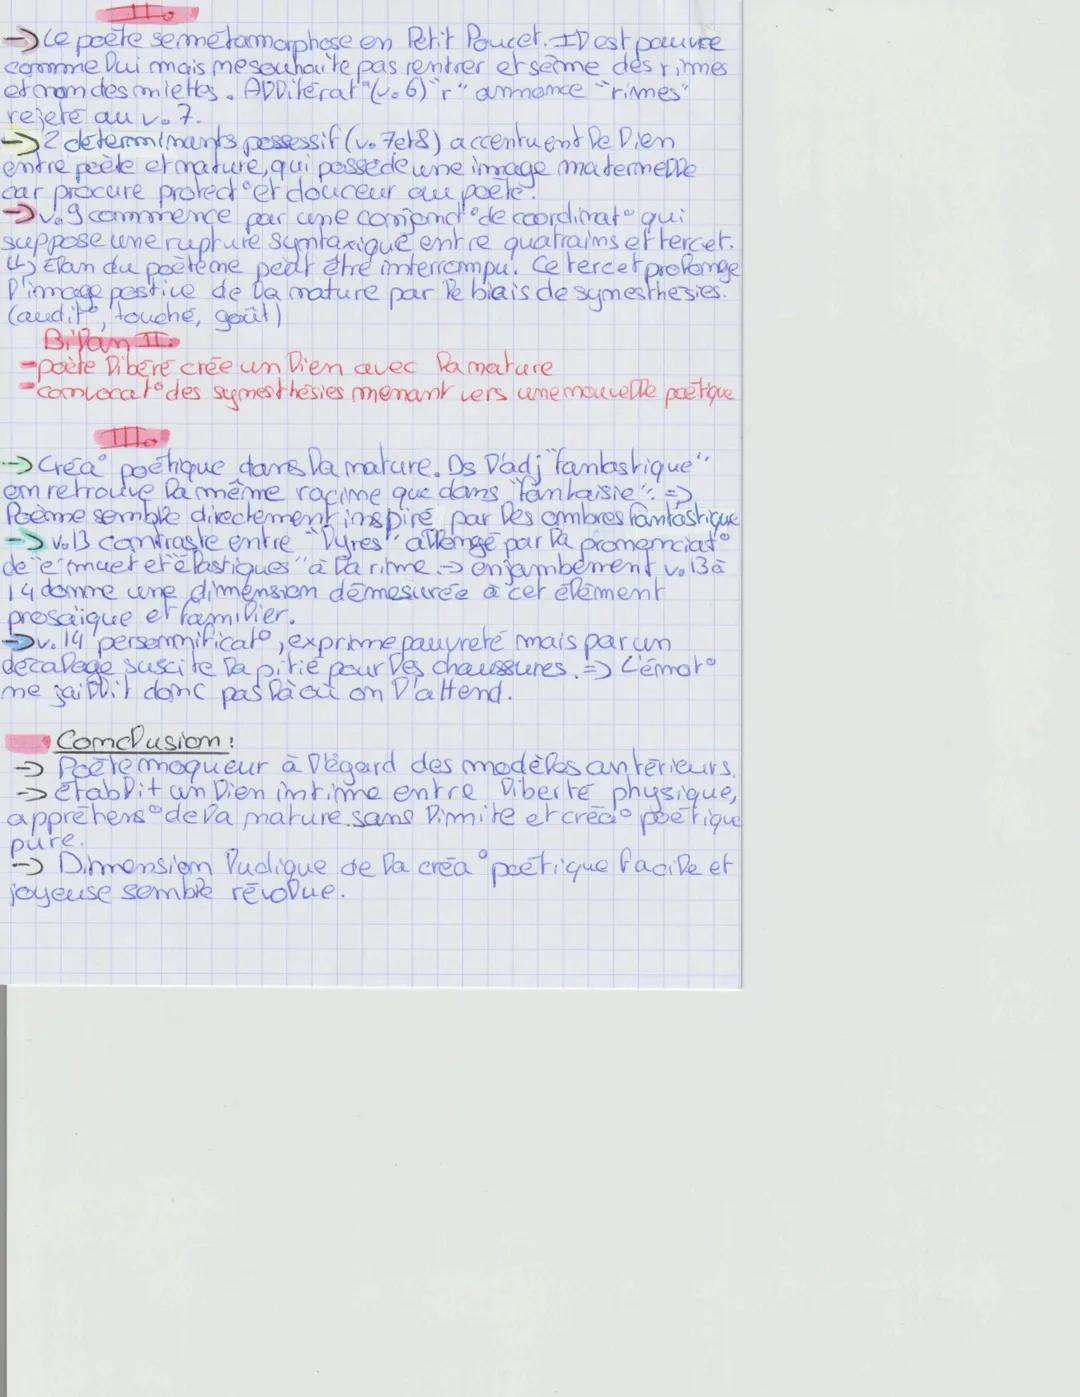 II.
→ Le poète se métamorphose en Petit Poucet. Il est pauvre
comme lui mais ne souhaite pas rentrer et sème des rimes
et non des miettes. Allitérat° (v.6) "r" annonce "rimes"
rejeté au v.7.
→ 2 déterminants possessif (v.7et8) accentuent le lien
entre poète et nature, qui possède une image maternelle
car procure protect° et douceur au poète.
→ v.9 commence par une conjonct° de coordinat° qui
suppose une rupture syntaxique entre quatrains et tercet.
↳ Elan du poète ne peut être interrompu. Ce tercet prolonge
l'image postive de la nature par le biais de synesthésies.
(audit°, touché, goût)
Bilan II.
- poète libéré crée un lien avec la nature
- convocat° des synesthésies menant vers une nouvelle poétique
III.
→ Créa° poétique dans la nature. Ds l'adj "fantastique"
on retrouve la même racine que dans "fantaisie". =>
Poème semble directement inspiré par les ombres fantastique
→ v.13 contraste entre "lyres" allongé par la prononciat°
de "e" muet et "élastiques" à la rime. => enjambement v.13 à
14 donne une dimension démesurée à cet élément
prosaïque et familier.
→ v.14 personnificat°, exprime pauvreté mais par un
décalage suscite la pitié pour les chaussures. => L'émot°
ne jaillit donc pas là où on l'attend.
Conclusion :
→ Poète moqueur à l'égard des modèles antérieurs.
→ établit un lien intime entre liberté physique,
appréhens° de la nature sans limite et créa° poétique
pure.
→ Dimension ludique de la créa° poétique facile et
joyeuse semble révolue.